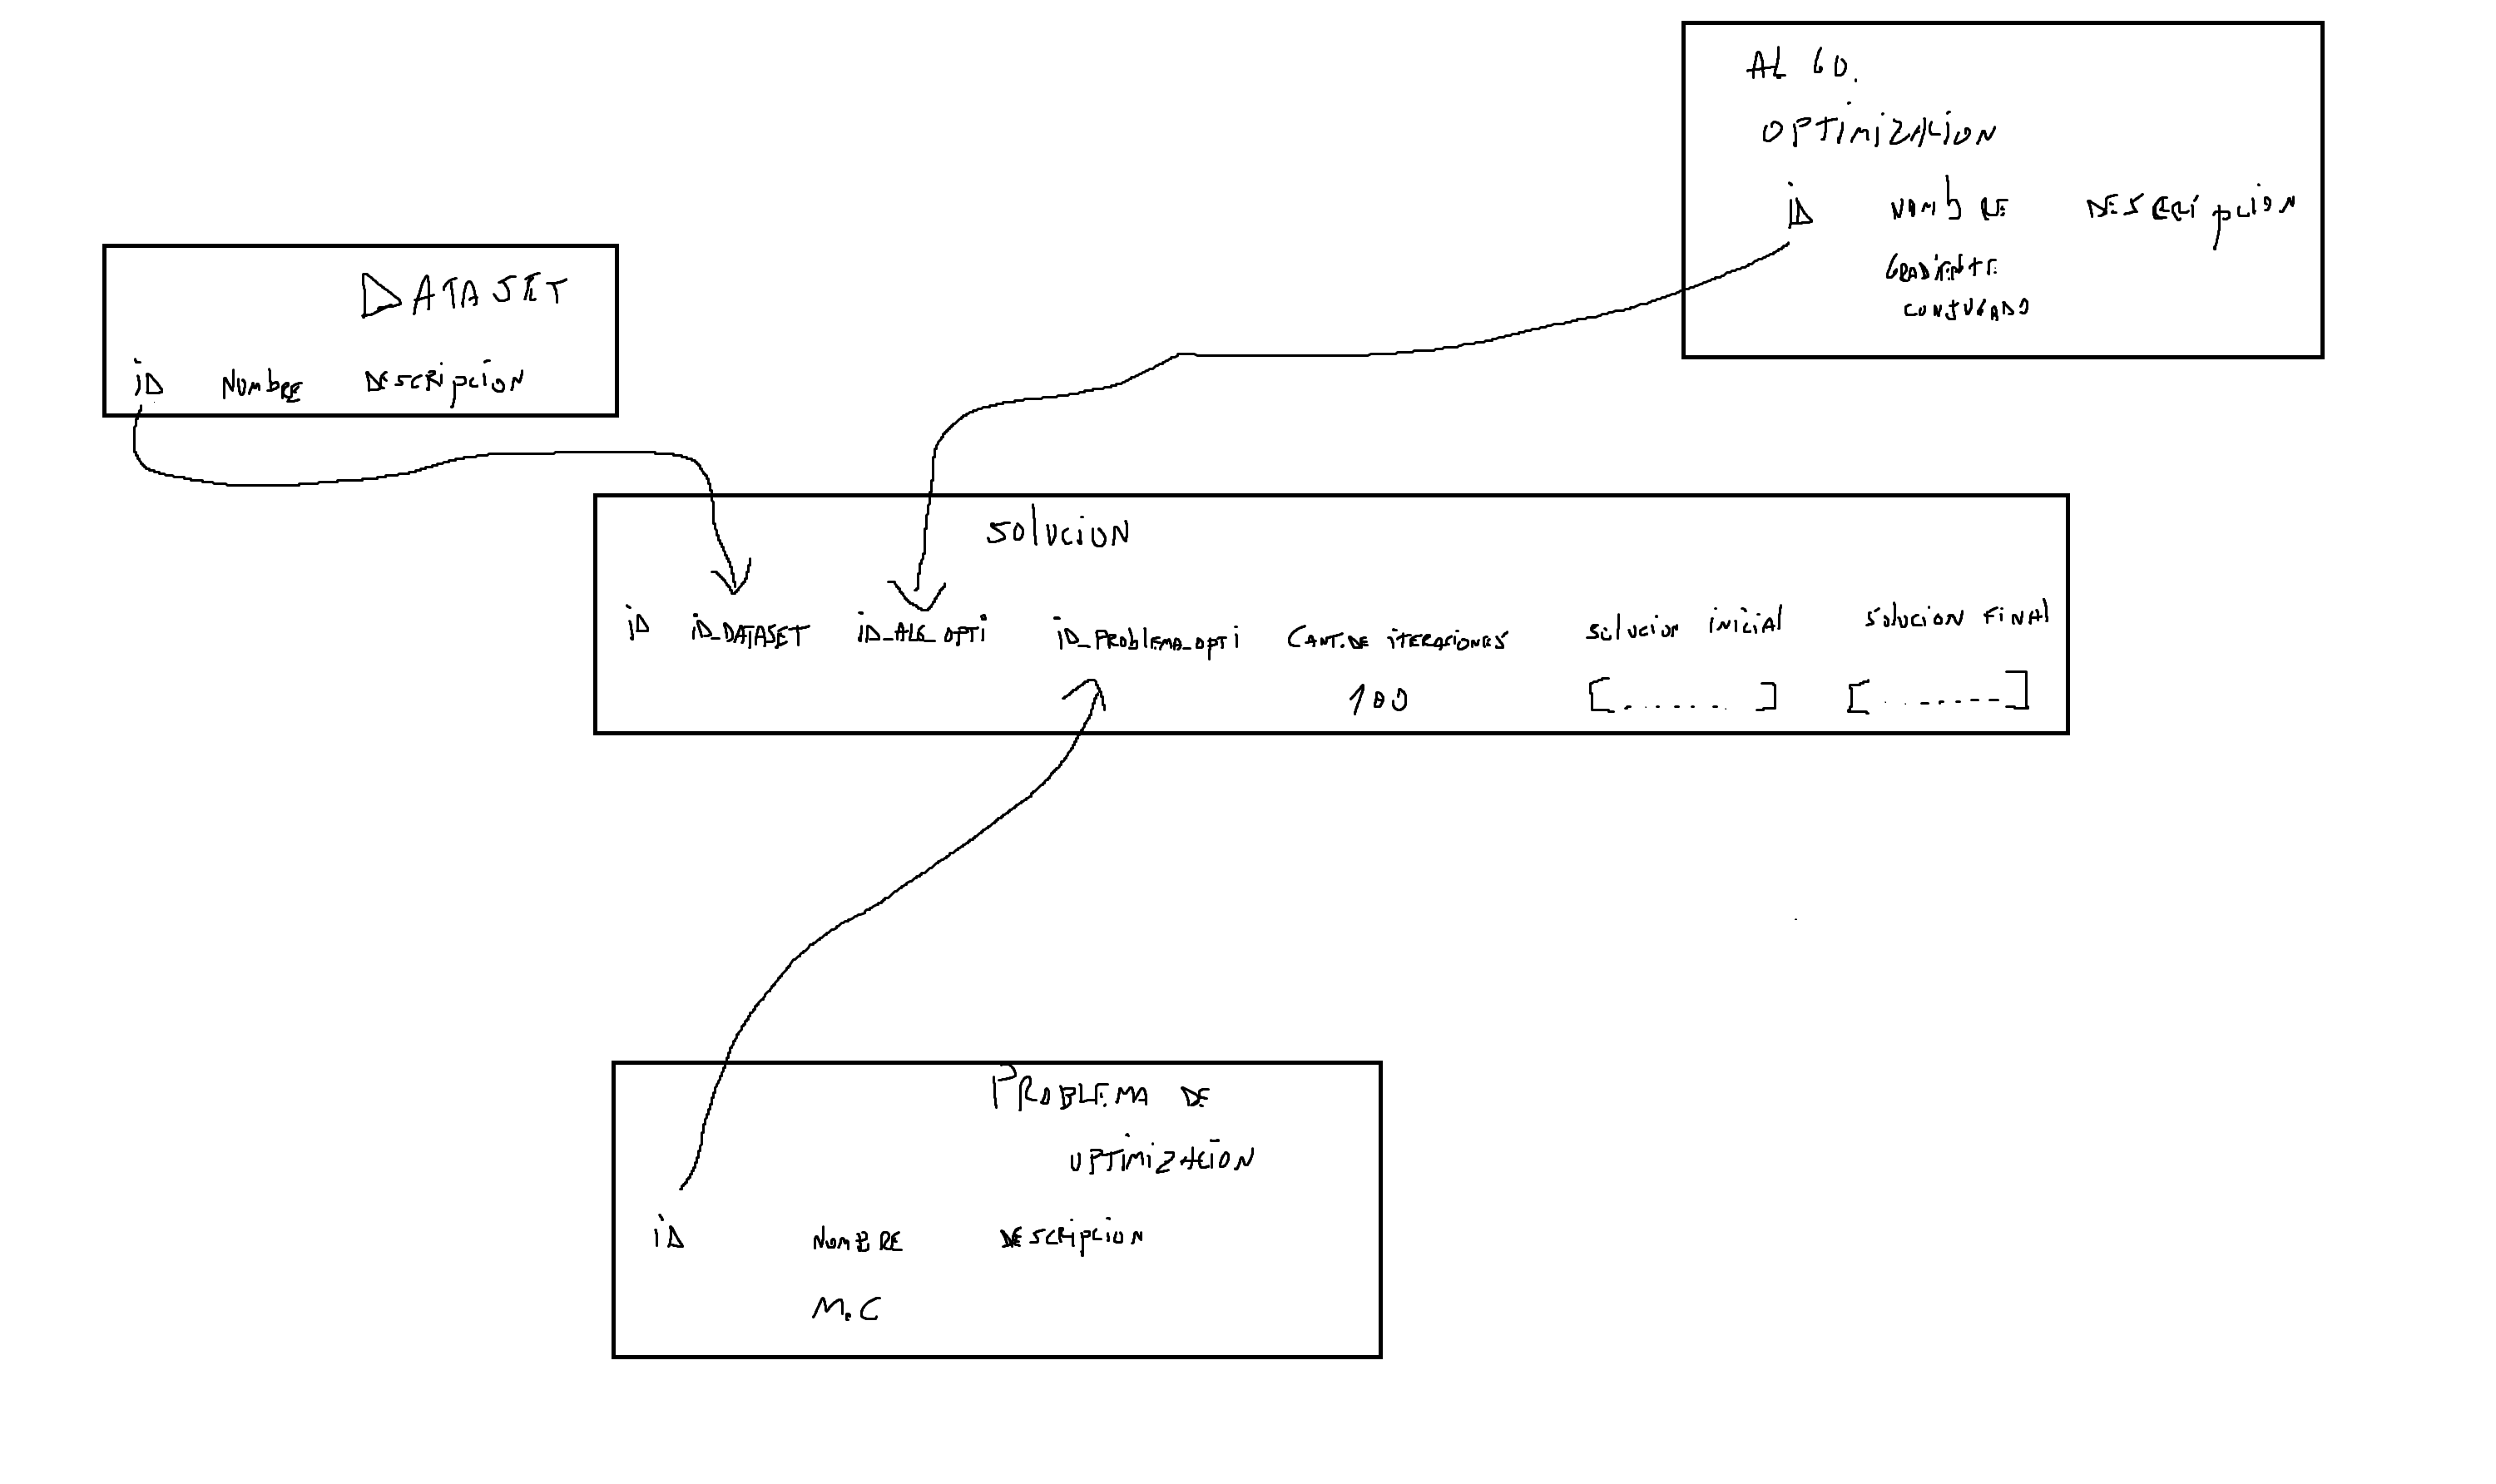 ALGO.
OPTIMIZACION
iD NOMbRE DESCRIpCION
GRADIENTE
CONJUGADO
DATASET
iD NOMbRE DESCRipciON
SOlUCiON
iD iD_DATASET iD_ALG_OPTi iD_PROblEMA_OPTi CANT.DE iTERACIONES SOlUCiON iNiCiAl SOlUCiON FiNAl
100 [.......] [. . . - - - - -]
PROBLEMA DE
OPTIMIZACION
iD NOMBRE DESCRipCiON
M.C